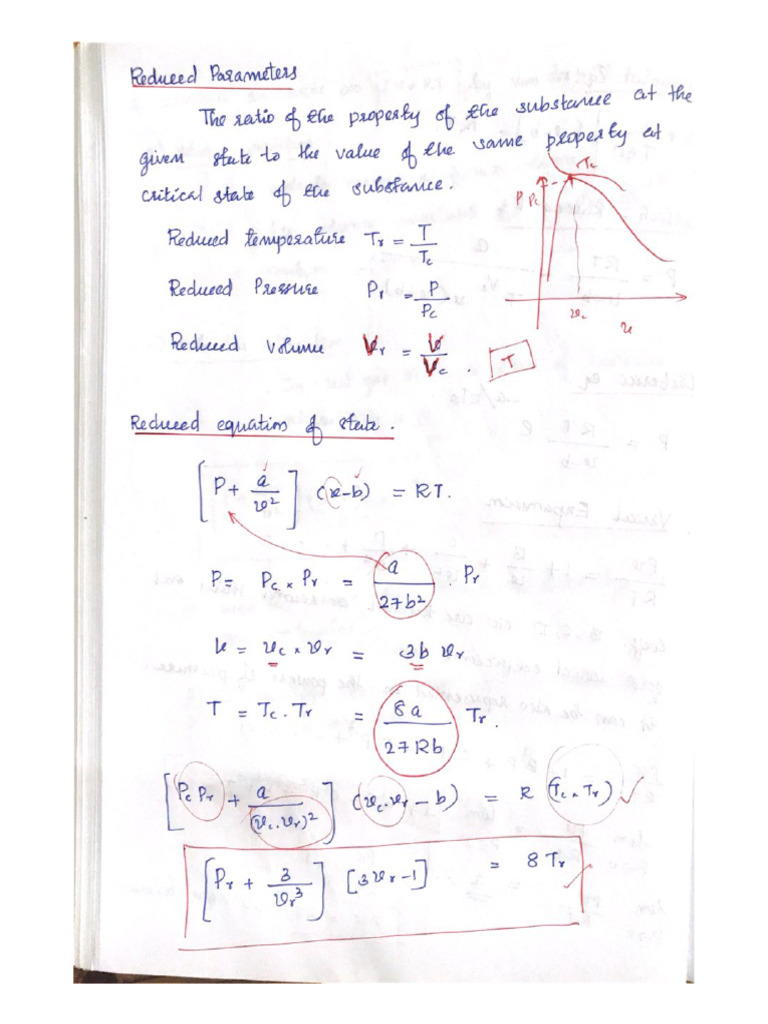 Reduced Parameters
The ratio of the property of the substance at the
given state to the value of the same property at
critical state of the substance.
Reduced temperature Tr = T/Tc
Reduced Pressure Pr = P/Pc
Reduced volume Vr = V/Vc . T
P Pc Tc
vc v
Reduced equation of state.
[P + a/v²] (v-b) = RT.
P = Pc × Pr = a/27b² . Pr
v = vc × vr = 3b vr
T = Tc . Tr = 8a/27Rb Tr.
[Pc Pr + a/(vc.vr)²] (vc.vr - b) = R (Tc × Tr)
[Pr + 3/vr³] [3vr - 1] = 8 Tr